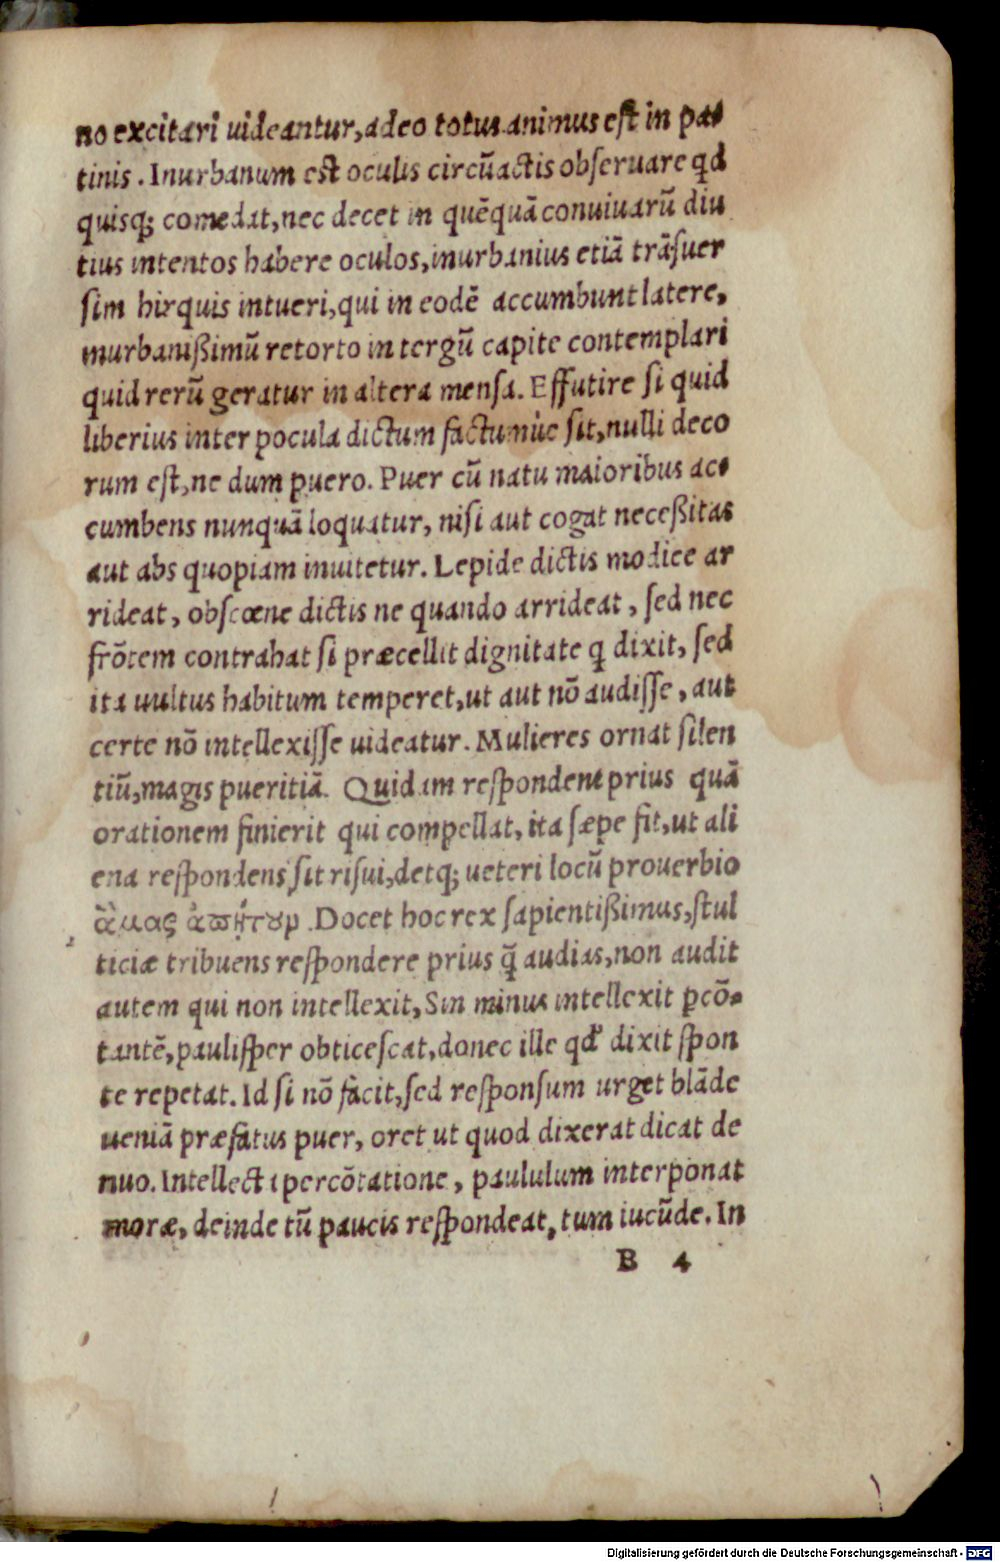 no excitari uideantur, adeo totus animus est in pa-
tinis. Inurbanum est oculis circũactis obſeruare qd
quisq; comedat, nec decet in quẽquã conuiuarũ diu
tius intentos habere oculos, inurbanius etiã trãſuer
ſim hirquis intueri, qui in eodẽ accumbunt latere,
inurbanißimũ retorto in tergũ capite contemplari
quid rerũ geratur in altera mensa. Effutire ſi quid
liberius inter pocula dictum factumùe ſit, nulli deco
rum eſt, ne dum puero. Puer cũ natu maioribus ac-
cumbens nunquã loquatur, niſi aut cogat neceßitas
aut abs quopiam inuitetur. Lepide dictis modice ar
rideat, obſcœne dictis ne quando arrideat, ſed nec
frõtem contrahat ſi præcellit dignitate q dixit, ſed
ita uultus habitum temperet, ut aut nõ audiſſe, aut
certe nõ intellexiſſe uideatur. Mulieres ornat ſilen
tiũ, magis pueritiã. Quidam reſpondent prius quã
orationem finierit qui compellat, ita ſæpe fit, ut ali
ena reſpondens ſit riſui, detq; ueteri locũ prouerbio
ἄμας ἀπῄτουρ. Docet hoc rex ſapientißimus, ſtul
ticiæ tribuens reſpondere prius q̃ audias, non audit
autem qui non intellexit, Sin minus intellexit ꝑcõ-
tantẽ, pauliſper obticeſcat, donec ille qd' dixit ſpon
te repetat. Id ſi nõ facit, ſed reſponſum urget blãde
ueniã præfatus puer, oret ut quod dixerat dicat de
nuo. Intellecta percõtatione, paululum interponat
moræ, deinde tũ paucis reſpondeat, tum iucũde. In
B 4
Digitalisierung gefördert durch die Deutsche Forschungsgemeinschaft - DFG